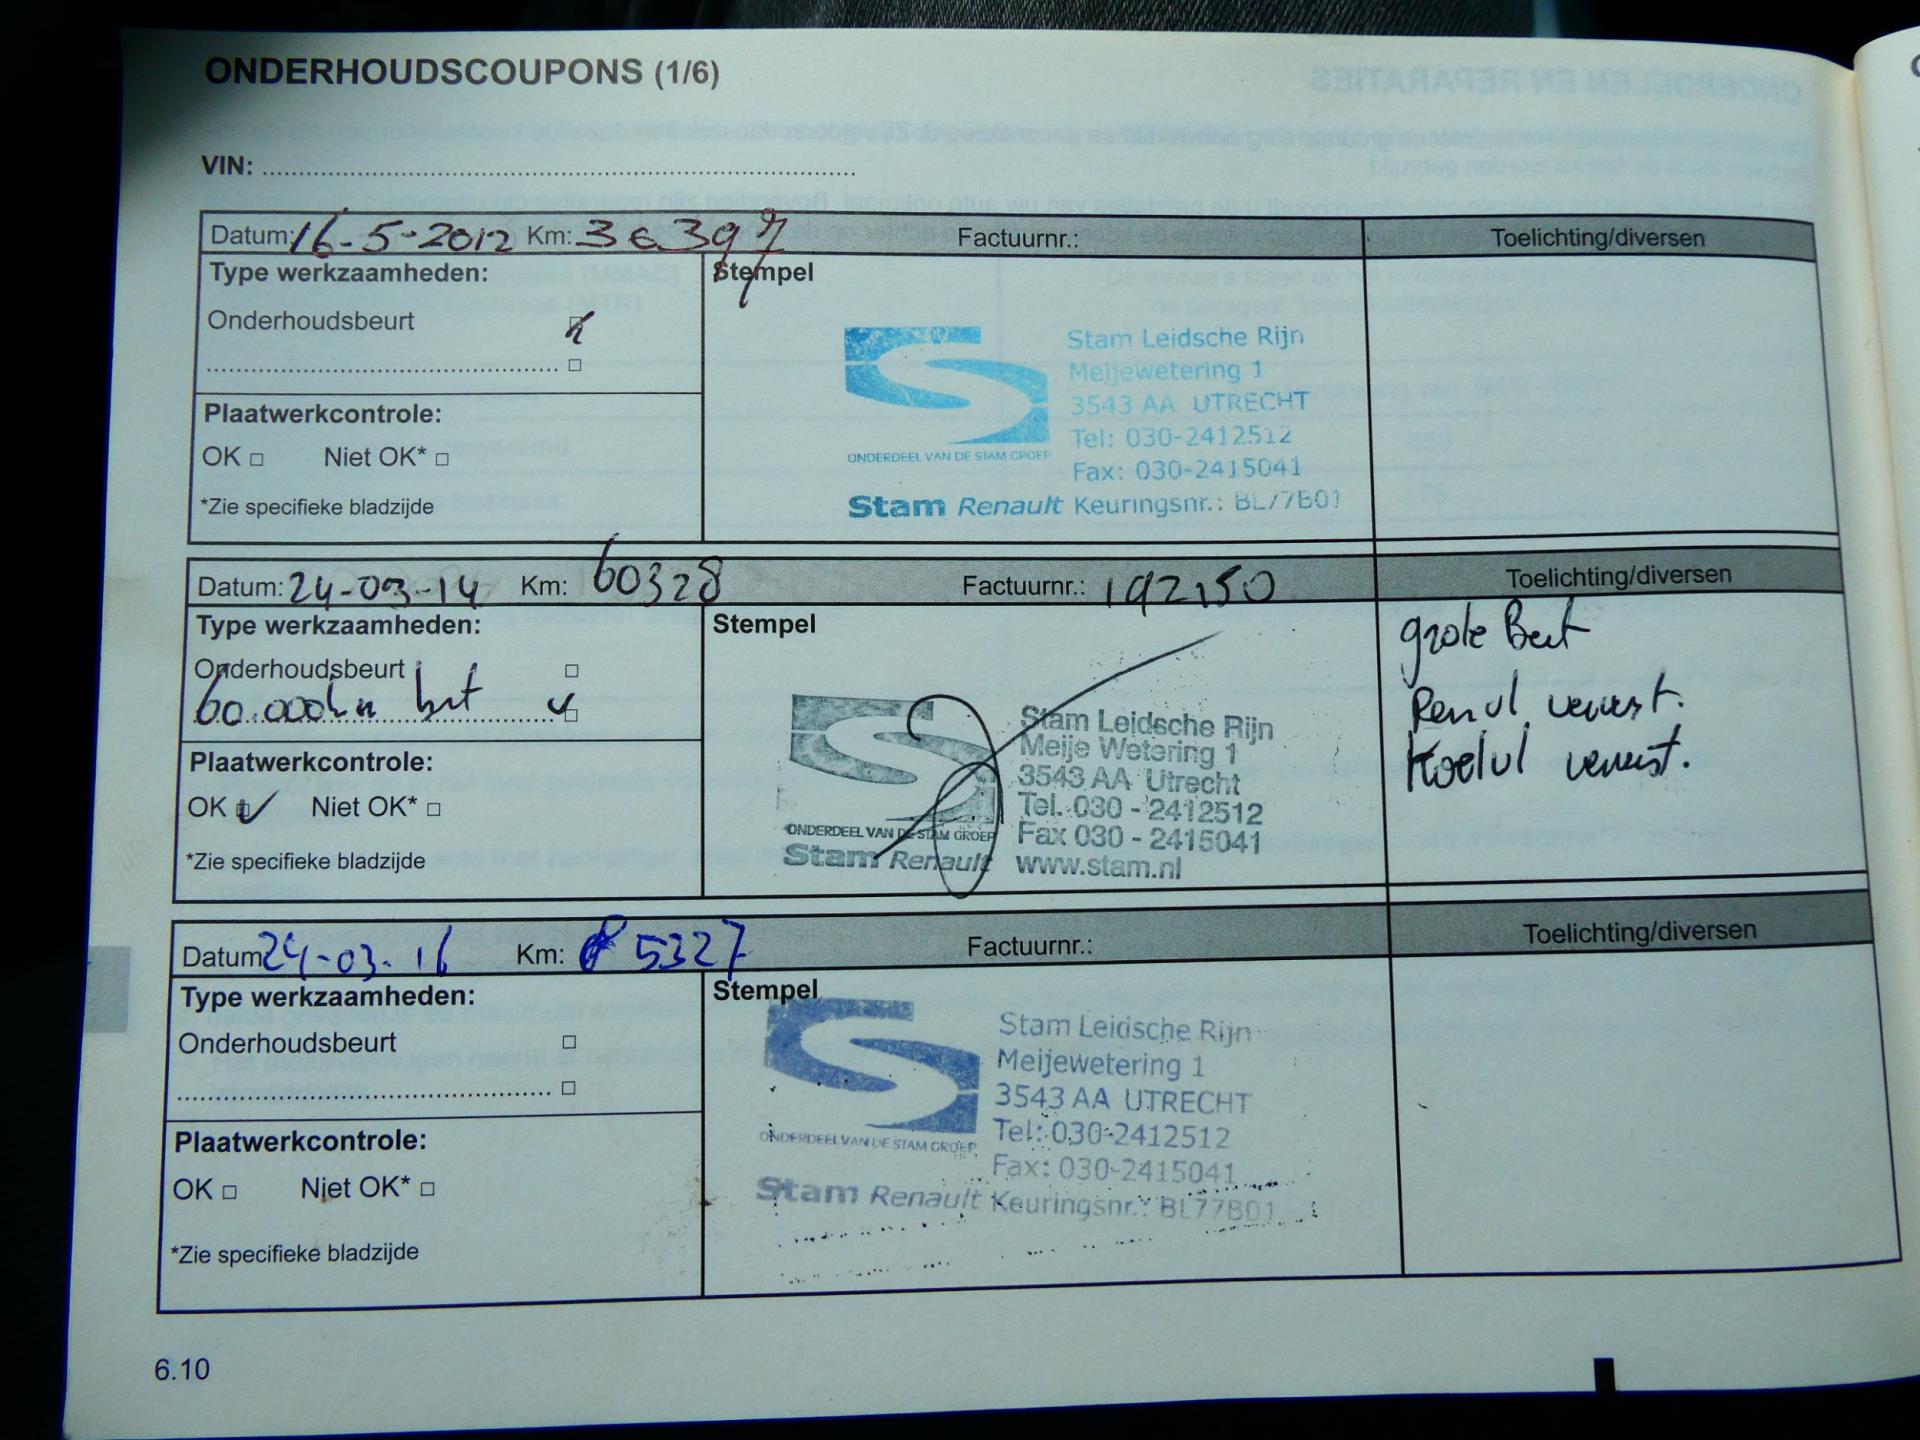 ONDERHOUDSCOUPONS (1/6)
VIN:
Datum: 16-5-2012 Km: 30397 Factuurnr.: Toelichting/diversen
Type werkzaamheden: Stempel
Onderhoudsbeurt
Stam Leidsche Rijn
Meijewetering 1
3543 AA UTRECHT
Tel: 030-2412512
Fax: 030-2415041
ONDERDEEL VAN DE STAM GROEP
Stam Renault Keuringsnr.: BL77B01
Plaatwerkcontrole:
OK Niet OK*
*Zie specifieke bladzijde
Datum: 24-03-14 Km: 60328 Factuurnr.: 192150 Toelichting/diversen
Type werkzaamheden: Stempel
Onderhoudsbeurt
60.000km brt
Stam Leidsche Rijn
Meije Wetering 1
3543 AA Utrecht
Tel. 030 - 2412512
Fax 030 - 2415041
www.stam.nl
ONDERDEEL VAN DE STAM GROEP
Stam Renault
grote Beurt
Remvl ververst.
Koelvl ververst.
Plaatwerkcontrole:
OK Niet OK*
*Zie specifieke bladzijde
Datum: 24-03-16 Km: 5327 Factuurnr.: Toelichting/diversen
Type werkzaamheden: Stempel
Onderhoudsbeurt
Stam Leidsche Rijn
Meijewetering 1
3543 AA UTRECHT
Tel: 030-2412512
Fax: 030-2415041
ONDERDEEL VAN DE STAM GROEP
Stam Renault Keuringsnr.: BL77B01
Plaatwerkcontrole:
OK Niet OK*
*Zie specifieke bladzijde
6.10